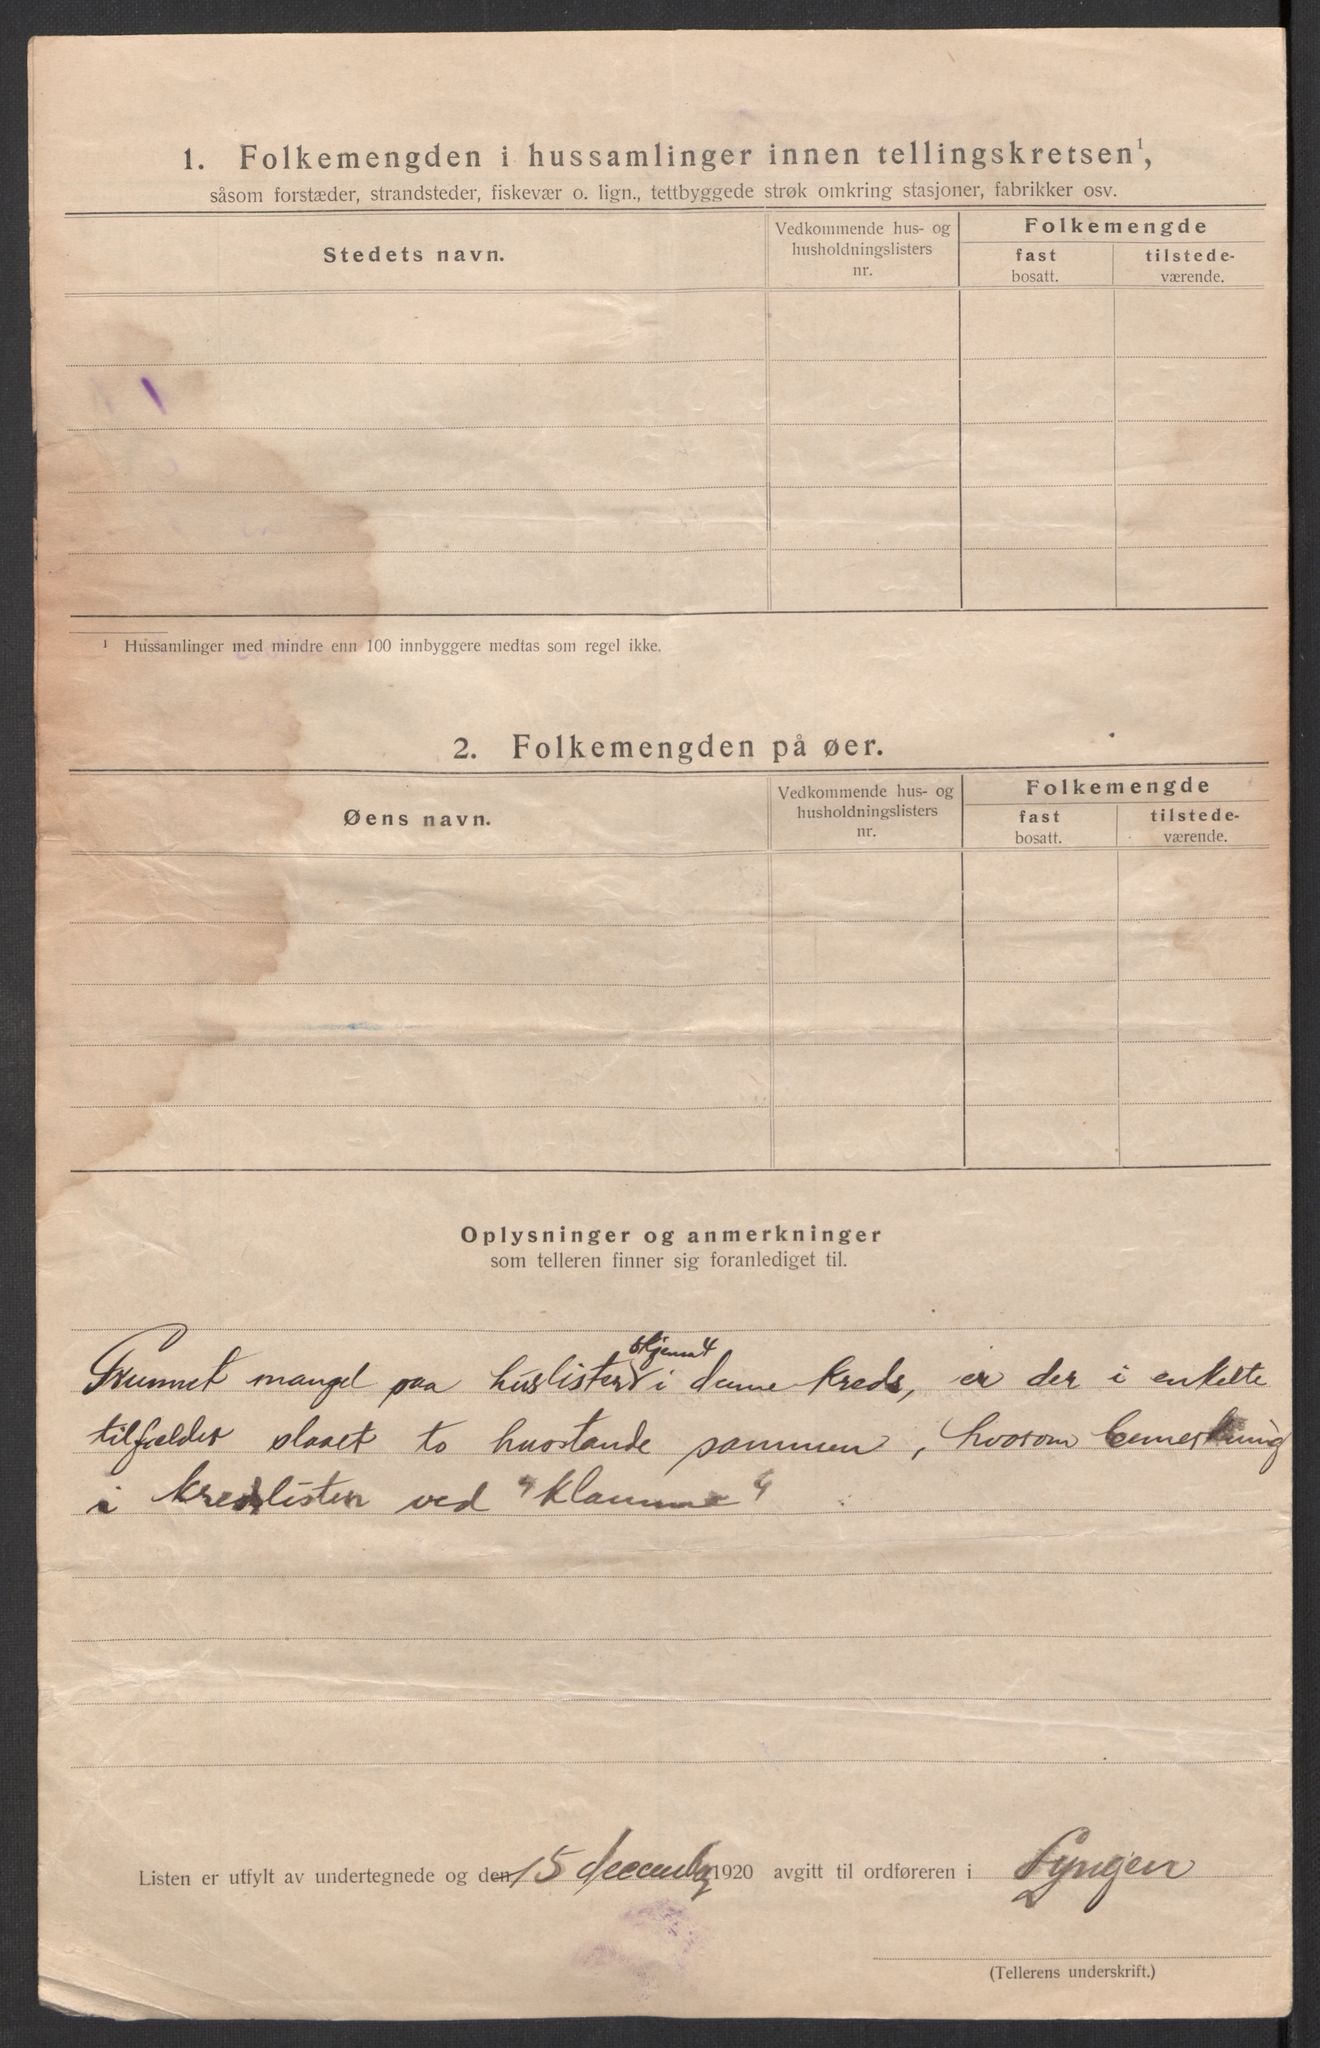 1. Folkemengden i hussamlinger innen tellingskretsen¹,
såsom forstæder, strandsteder, fiskevær o. lign., tettbyggede strøk omkring stasjoner, fabrikker osv.
Stedets navn.
Vedkommende hus- og
husholdningslisters
nr.
Folkemengde
fast
bosatt.
tilstede-
værende.
¹ Hussamlinger med mindre enn 100 innbyggere medtas som regel ikke.
2. Folkemengden på øer.
Øens navn.
Vedkommende hus- og
husholdningslisters
nr.
Folkemengde
fast
bosatt.
tilstede-
værende.
Oplysninger og anmerkninger
som telleren finner sig foranlediget til.
skjema 4
Grunnet mangel paa huslister i denne kreds, er der i enkelte
tilfælder slaaet to husstande sammen, hvorom bemerkning
i kredslisten ved "klamme"
Listen er utfylt av undertegnede og den 15 decembr 1920 avgitt til ordføreren i Lyngen
(Tellerens underskrift.)